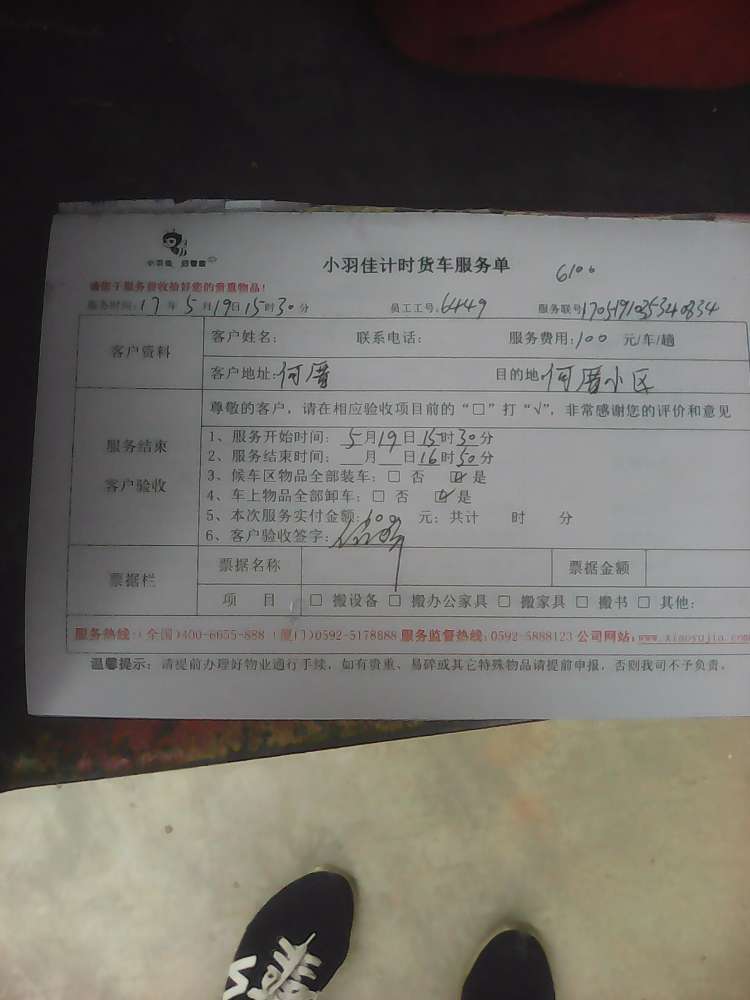 小羽佳计时货车服务单
6100
请您于服务前收拾好您的贵重物品!
服务时间:17年5月19日15时30分 员工工号:6449 服务联号1705191035340834
客户资料
客户姓名: 联系电话: 服务费用:100 元/车/趟
客户地址:何厝 目的地:何厝小区
服务结束
客户验收
尊敬的客户,请在相应验收项目前的“□”打“√”,非常感谢您的评价和意见
1、服务开始时间:5月19日15时30分
2、服务结束时间:__月__日16时50分
3、候车区物品全部装车:□ 否 ☑是
4、车上物品全部卸车:□ 否 ☑是
5、本次服务实付金额:100 元:共计 时 分
6、客户验收签字:
票据栏
票据名称 票据金额
项 目 □ 搬设备 □ 搬办公家具 □ 搬家具 □ 搬书 □ 其他:
服务热线:(全国)400-6655-888 (厦门)0592-5178888 服务监督热线:0592-5888123 公司网站:www.xiaoyujia.com
温馨提示:请提前办理好物业通行手续,如有贵重、易碎或其它特殊物品请提前申报,否则我司不予负责。